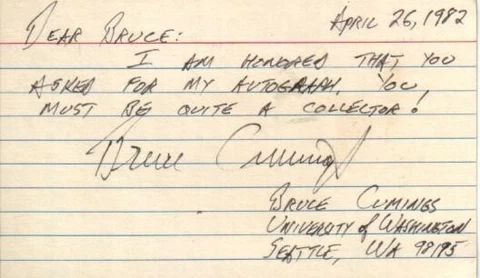 April 26, 1982
Dear Bruce:
I am honored that you
asked for my autograph. You,
must be quite a collector!
Bruce Cumings
Bruce Cumings
University of Washington
Seattle, WA 98195